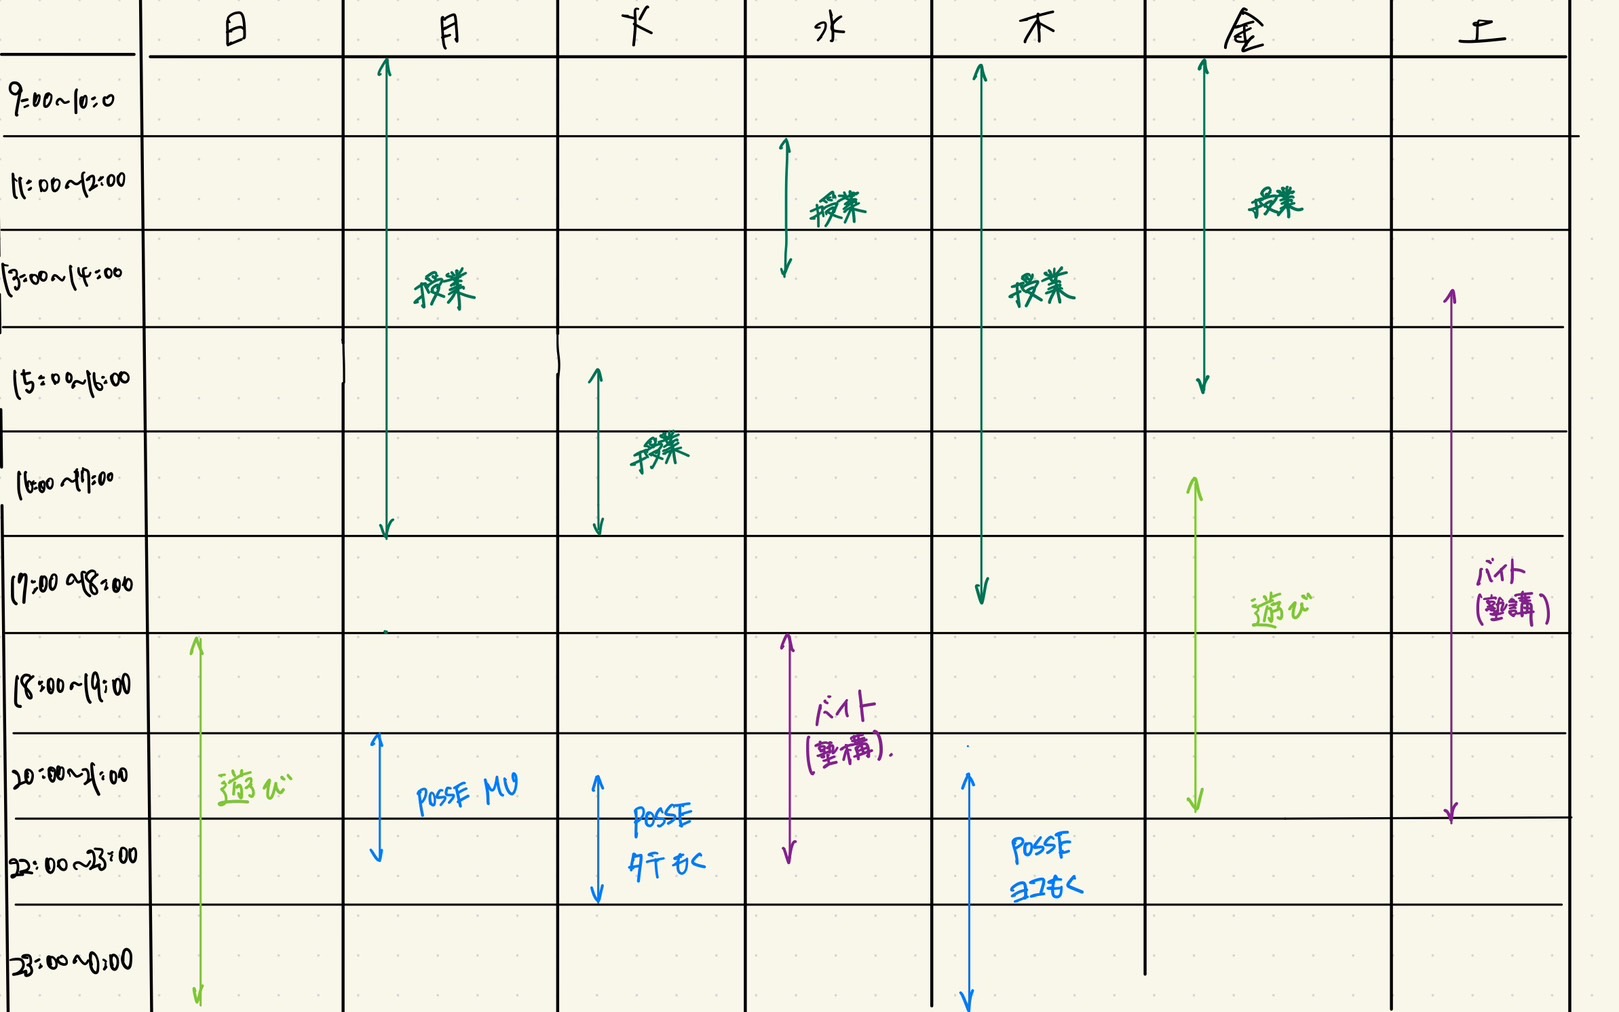 日 月 火 水 木 金 土
9:00~10:0
11:00~12:00
授業
授業
13:00~14:00
授業
授業
15:00~16:00
授業
16:00~17:00
17:00~18:00
遊び
バイト
(塾講)
18:00~19:00
バイト
(塾構).
20:00~21:00
遊び
POSSE MU
POSSE
タテもく
22:00~23:00
POSSE
ヨコもく
23:00~0:00